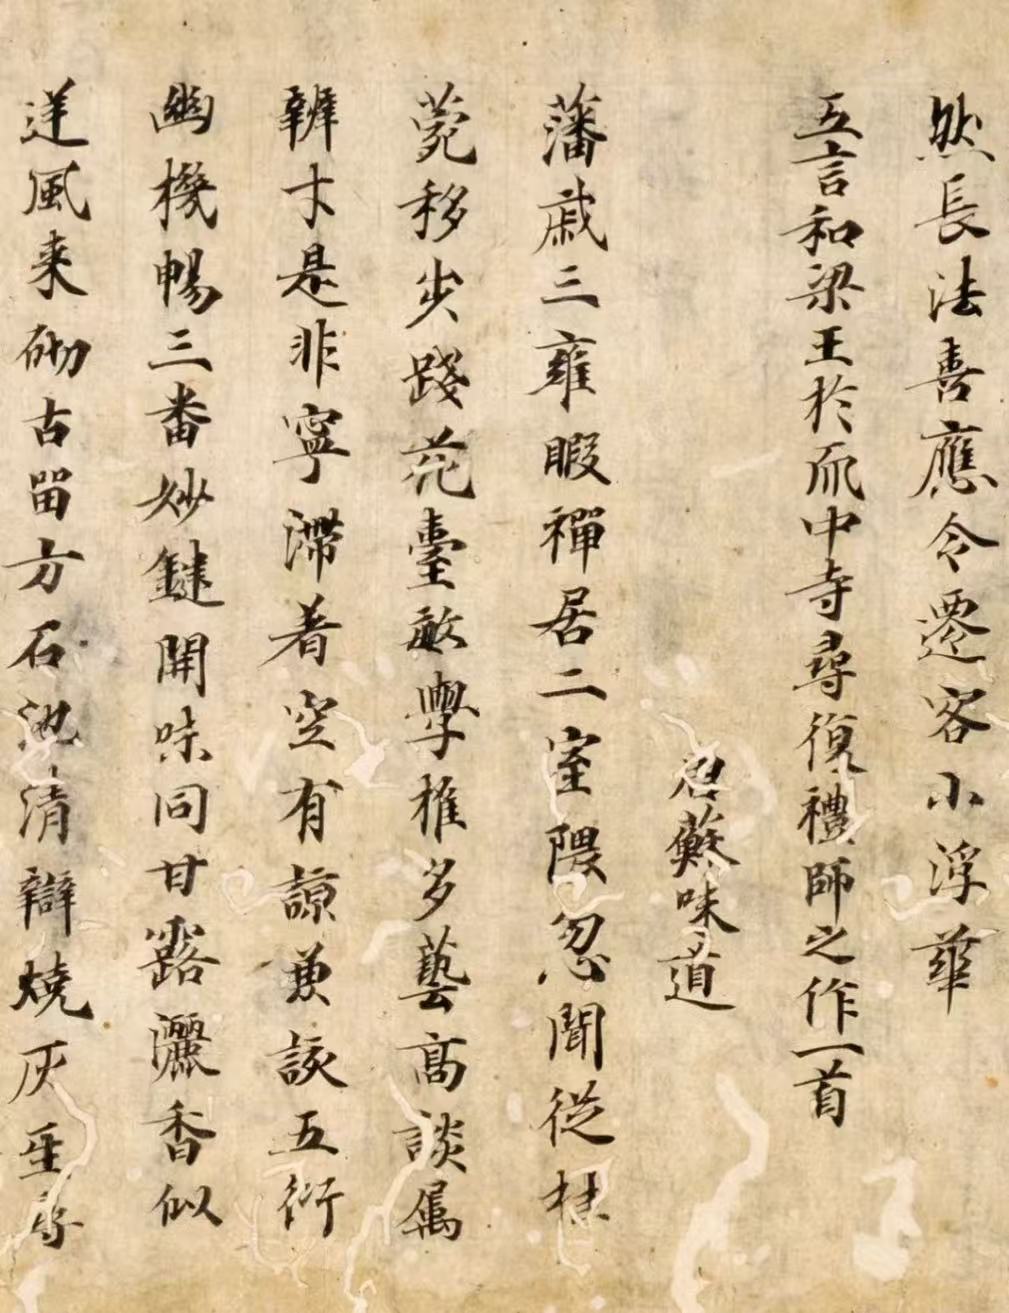 然長法善應令遷客小浮華
五言和梁王於爪中寺尋復禮師之作一首
蘇味道
藩戚三雍暇禪居二室隈忽聞從桂
菀移步踐花臺敏學推多藝高談屬
辨才是非寧滯着空有諒兼該五衍
幽機暢三番妙鍵開味同甘露灑香似
逆風来砌古留方石池清辯燒灰垂